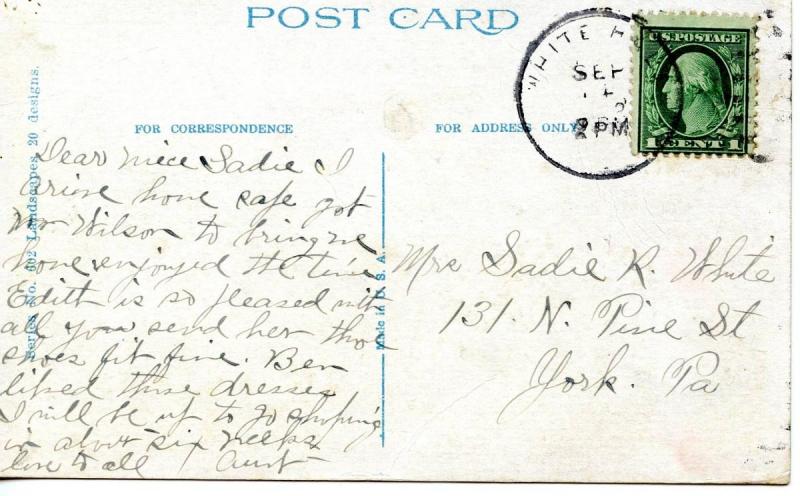 POST CARD
WHITE H
SEP
2 PM
U.S. POSTAGE
1 CENT 1
FOR CORRESPONDENCE
FOR ADDRESS ONLY
Series No. 602 Landscapes, 20 designs.
Made in U.S.A.
Dear niece Sadie I
arive home safe got
Mr Wilson to bring me
home enjoyed the time
Edith is so pleased with
all you send her those
shoes fit fine. Ben
liked those dresses
I will be up to go shoping
in about six weeks
love to all Aunt
Mrs Sadie R. White
131. N. Pine St
York. Pa